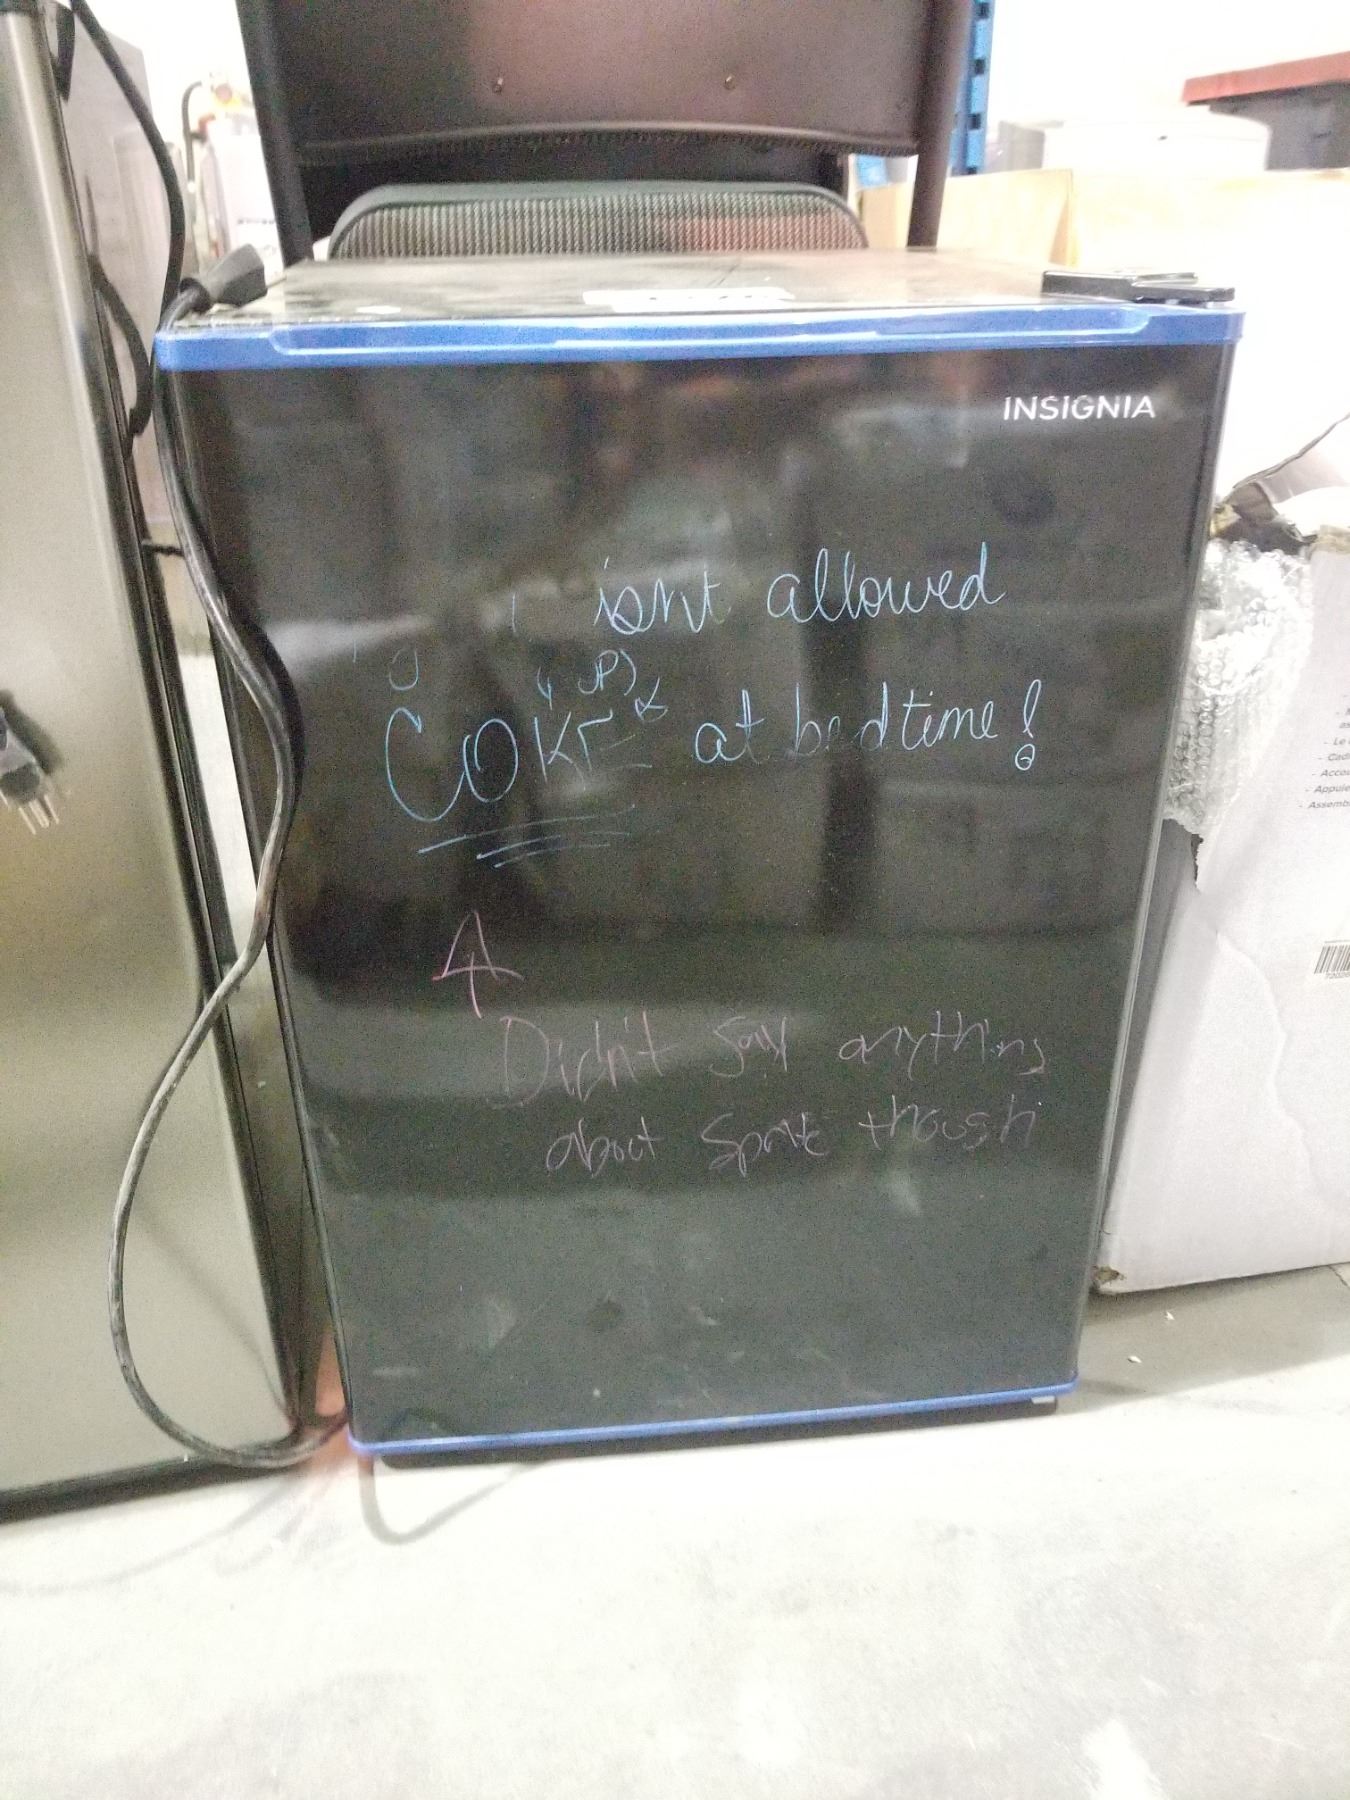 INSIGNIA
isn't allowed
COKE at bedtime!
Didn't say anything
about Sprite though
- Le
- Cadr
- Acco
- Appuie
- Assemb